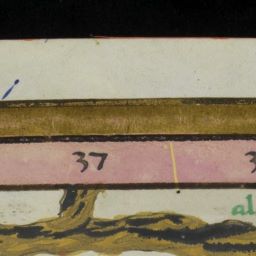 37 3
al